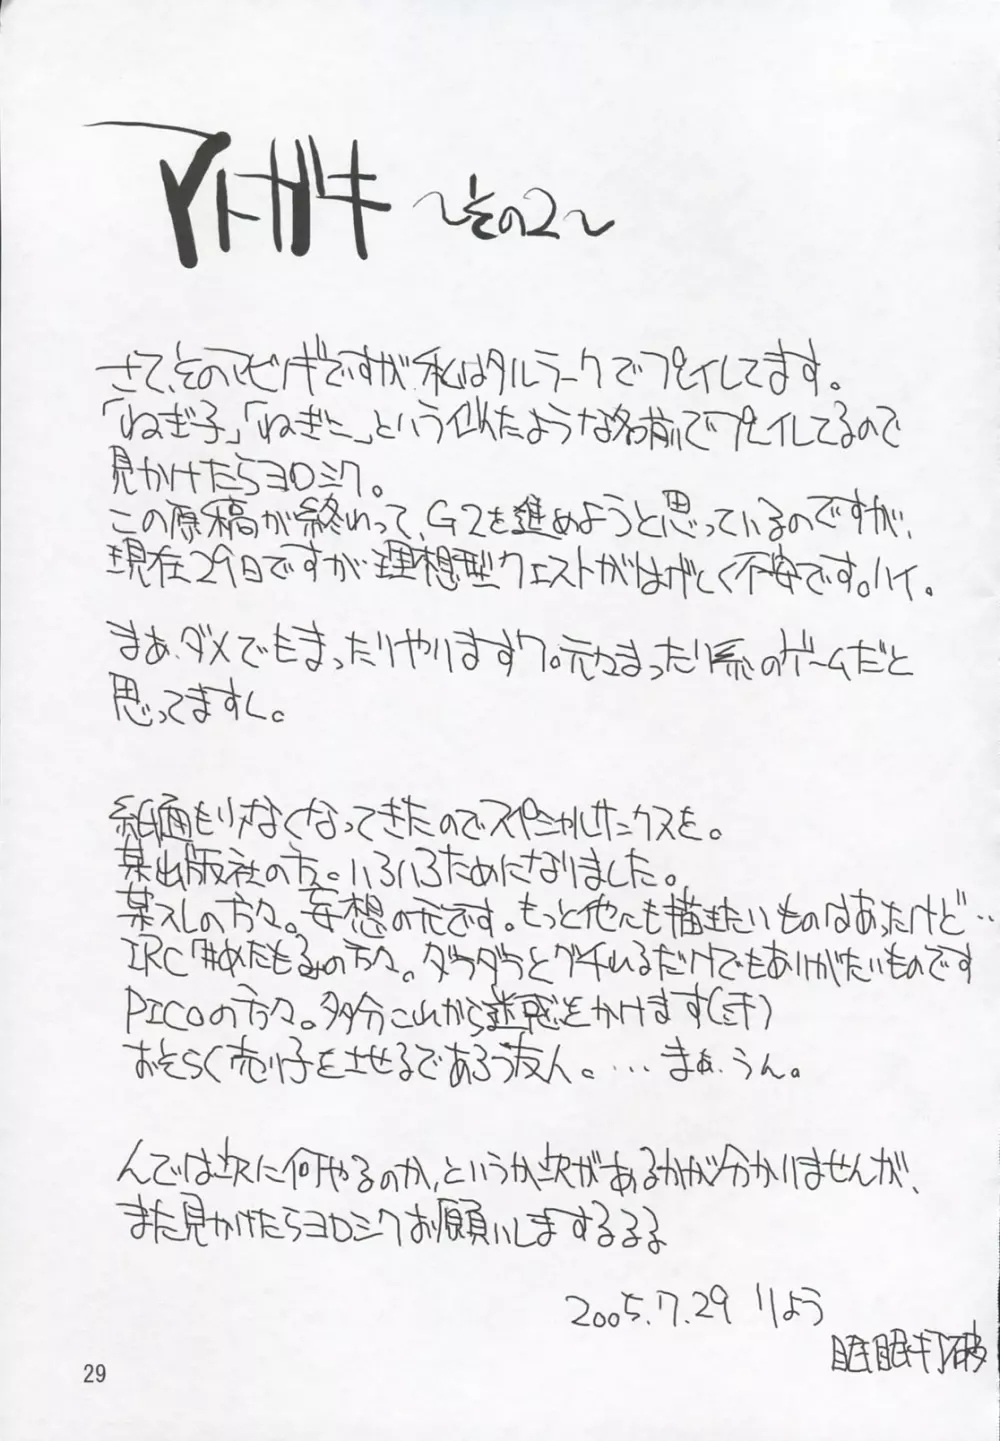 アトガキ ～その2～
さて、そのマビノギですが、私はタルラークでプレイしてます。
「ねぎ子」「ねぎこ」という似たような名前でプレイしてるので
見かけたらヨロシク。
この原稿が終わって、G2を進めようと思っているのですが、
現在29日ですが理想型クエストがはげしく不安です。ハイ。
まぁ、ダメでもまったりやりますワ。元々まったり系のゲームだと
思ってますし。
紙面もリクなくなってきたのでスペシャルサンクスを。
某出版社の方。いろいろためになりました。
某スレの方々。妄想の元です。もっと他にも描きたいものはあったけど‥
IRC「#めだもるみの方々。ダラダラとグチれるだけでもありがたいものです
PICOの方々。多分これから迷惑をかけます(ぉ)
おそらく売り子をませるであろう友人。…まぁ、うん。
んでは次に何やるのか、というか次があるかが分かりませんが、
また見かけたらヨロシクお願いしまするるる
2005.7.29 りよう
眠眠打破
29